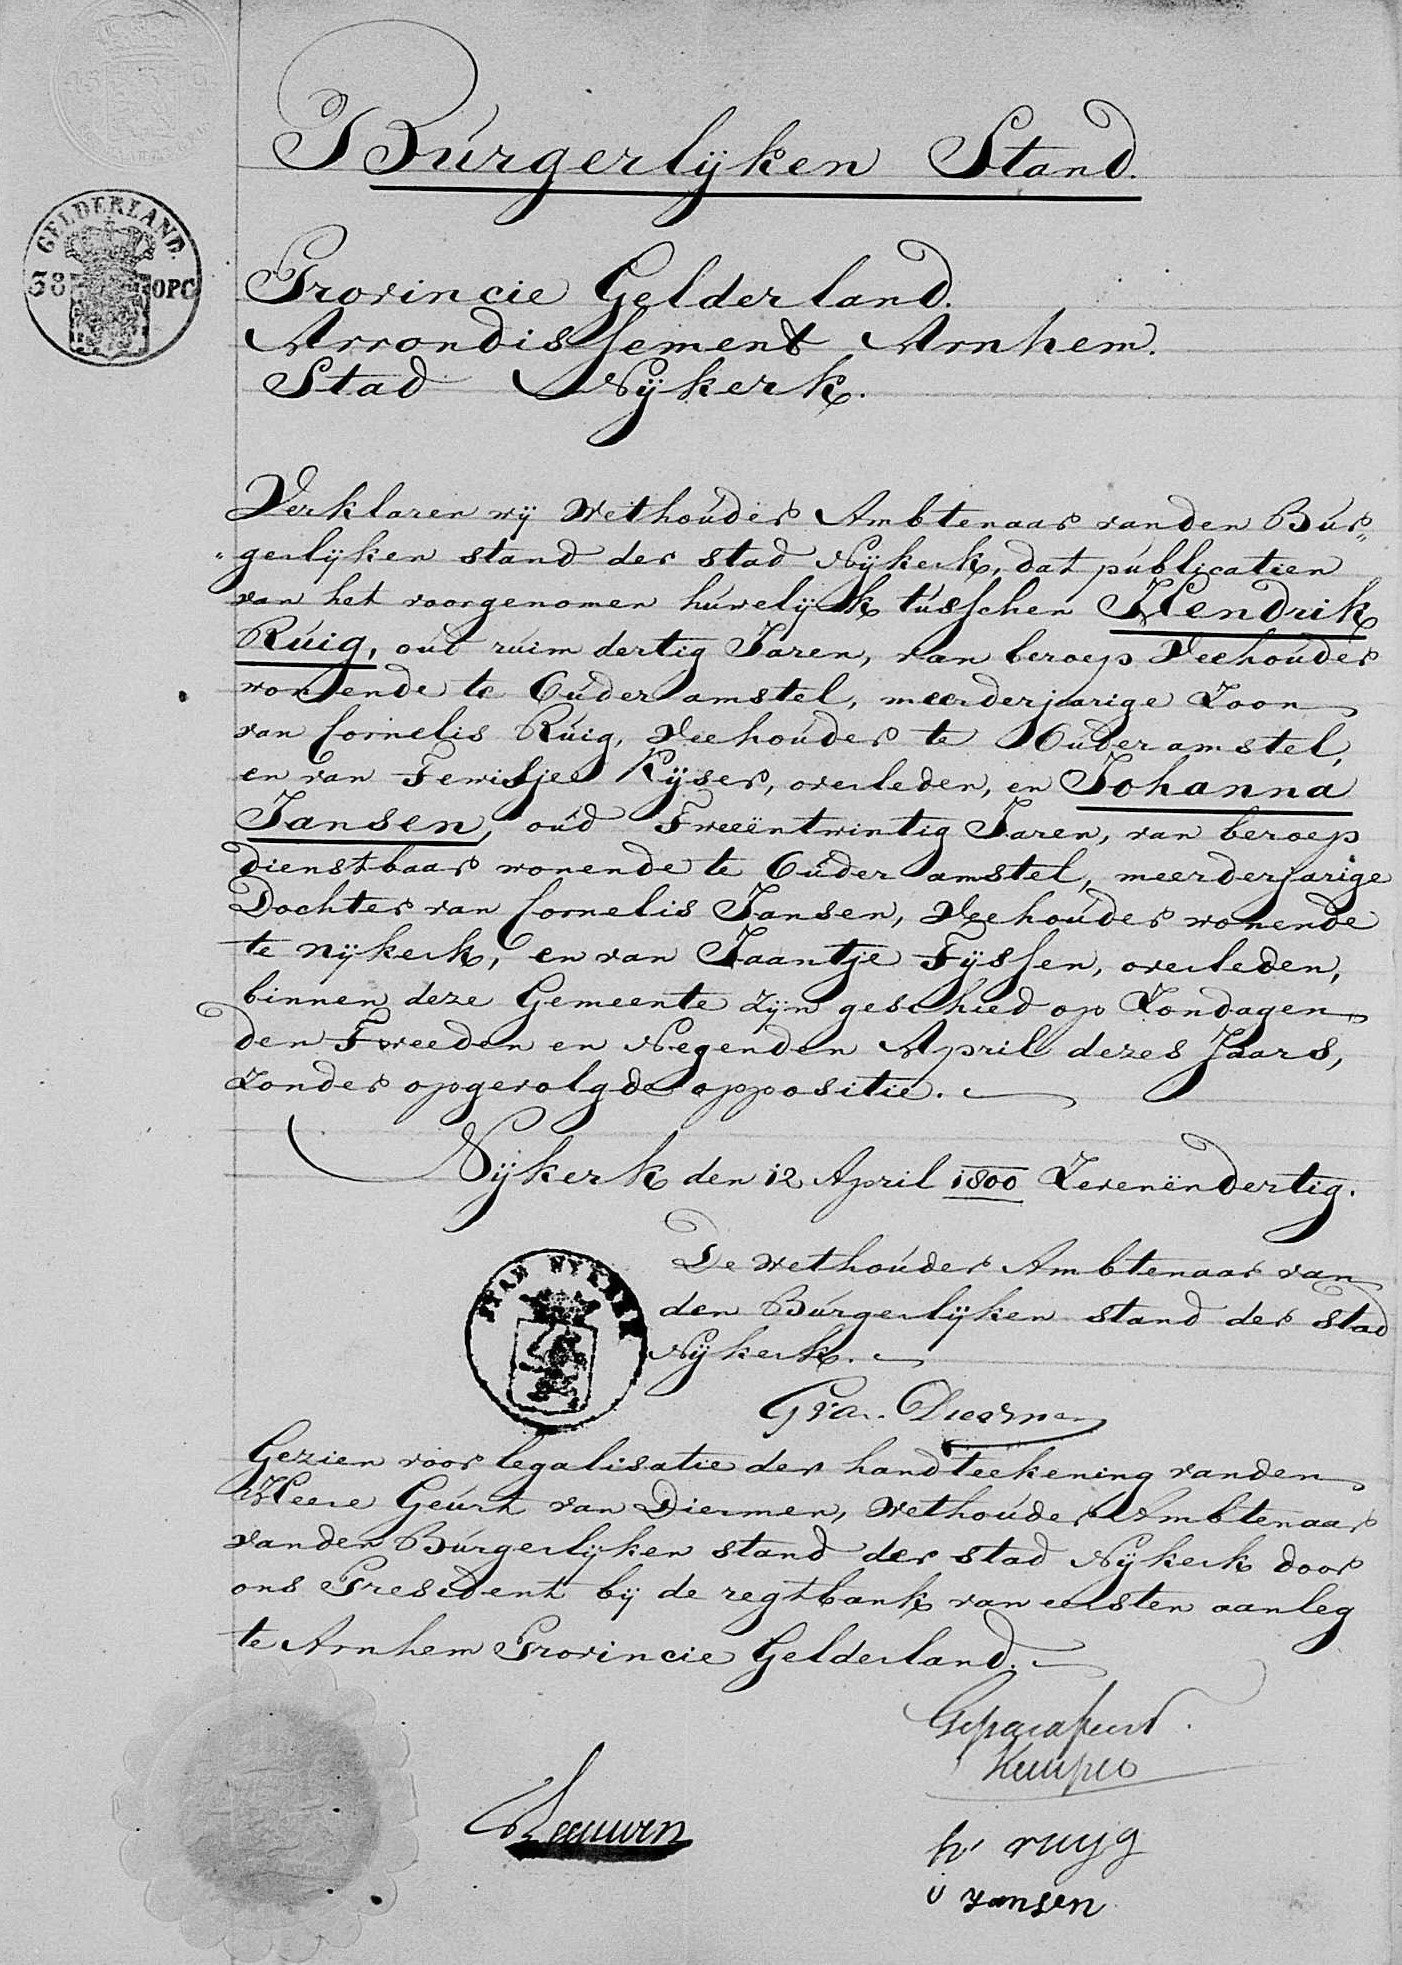 Burgerlijken Stand.
GELDERLAND.
38 OPC
Provincie Gelderland.
Arrondissement Arnhem.
Stad Nijkerk.
Verklaren wij Wethouder Ambtenaar vanden Bur„
„gerlijken stand der stad Nijkerk, dat publicatien
van het voorgenomen huwelijk tusschen Hendrik
Ruig, oud ruim dertig Jaren, van beroep Veehouder
wonende te Ouderamstel, meerderjarige Zoon
van Cornelis Ruig, Veehouder te Ouderamstel,
en van Kijser, overleden, en Johanna
Jansen, oud Tweeëntwintig Jaren, van beroep
dienstbaar wonende te Ouderamstel, meerderjarige
Dochter van Cornelis Jansen, Veehouder wonende
te Nijkerk, en van Jaantje Tijssen, overleden,
binnen deze Gemeente zijn geschied op Zondagen
den Tweeden en Negenden April dezes Jaars,
zonder opgevolgde oppositie.
Nijkerk den 12 April 1800 Zevenëndertig.
De wethouder Ambtenaar van
den Burgerlijken stand der stad
Nijkerk.
STAD NYKERK
G van Diermen
Gezien voor legalisatie der handteekening vanden
Heere Geurt van Diermen, Wethouder Ambtenaar
vanden Burgerlijken stand der stad Nijkerk door
ons President bij de regtbank van eersten aanleg
te Arnhem Provincie Gelderland.
Geparafeerd.
Kemper
Leeuwen
h ruyg
j yansen